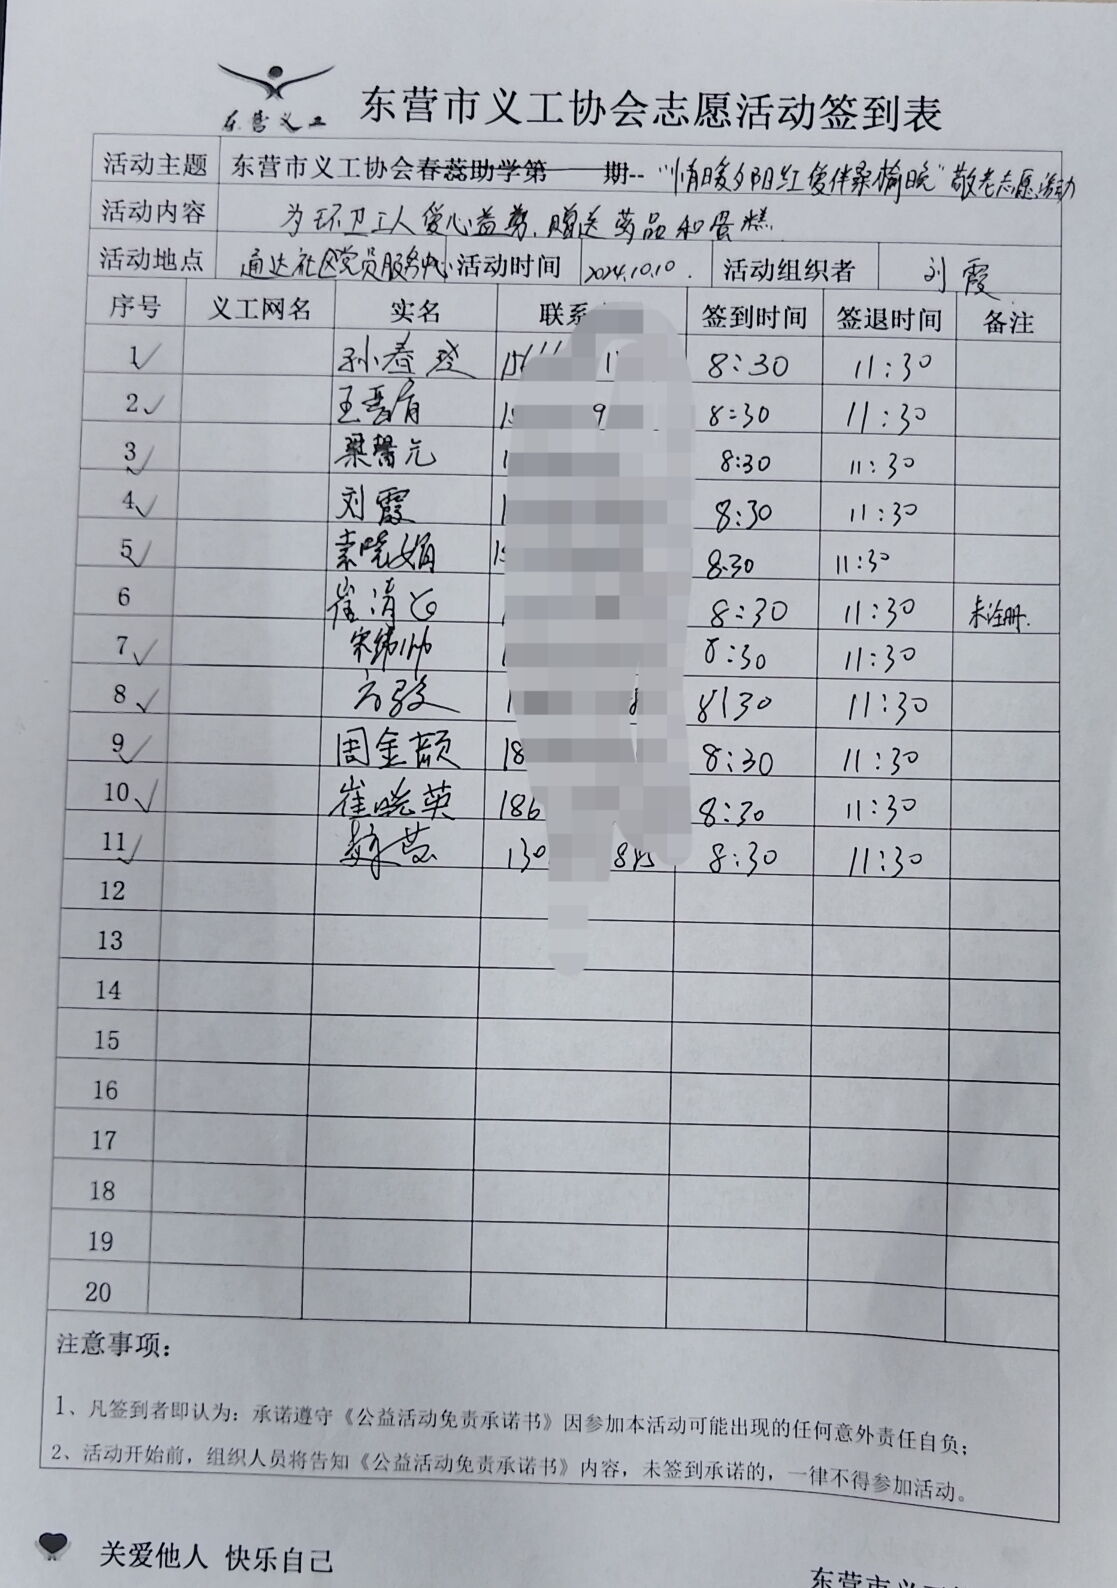 东营义工
东营市义工协会志愿活动签到表
活动主题 东营市义工协会春蕊助学第 期--"情暖夕阳红爱伴桑榆晚"敬老志愿活动
活动内容 为环卫工人爱心益剪.赠送药品和蛋糕.
活动地点 通达社区党员服务中心 活动时间 2024.10.10. 活动组织者 刘霞
序号 义工网名 实名 联系 签到时间 签退时间 备注
1 孙春 8:30 11:30
2 王 8:30 11:30
3 梁馨元 8:30 11:30
4 刘霞 8:30 11:30
5 索晓娟 8:30 11:30
6 崔 8:30 11:30 未注册.
7 宋 8:30 11:30
8 8:30 11:30
9 周金颖 18 8:30 11:30
10 崔晓英 186 8:30 11:30
11 130 845 8:30 11:30
12
13
14
15
16
17
18
19
20
注意事项：
1、凡签到者即认为：承诺遵守《公益活动免责承诺书》因参加本活动可能出现的任何意外责任自负；
2、活动开始前，组织人员将告知《公益活动免责承诺书》内容，未签到承诺的，一律不得参加活动。
关爱他人 快乐自己
东营市义